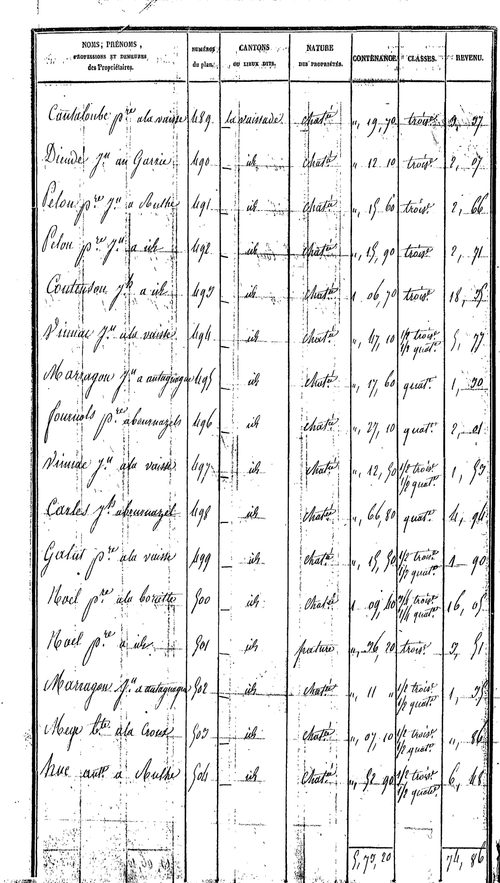 NOMS, PRÉNOMS, PROFESSIONS ET DEMEURES des Propriétaires. NUMÉROS du plan. CANTONS OU LIEUX DITS. NATURE DES PROPRIÉTÉS. CONTENANCE. CLASSES. REVENU.
Cantaloube pre a la vaisse 489 la vaissade chatė " 19, 70 trois. 3, 37
Dieudé Jn au Garric 490 id chatė " 12 10 trois. 2, 07
Pelou pre Jn a Ruthe 491 id chatė " 15 60 trois. 2, 66
Pelou pre Jn a id 492 id chatė " 15, 90 trois. 2, 71
Coutenson Jh a id 493 id chatė 1 06, 70 trois. 18, 25
Vimac Jn a la vaisse 494 id chatė " 47, 10 1/2 trois. 1/2 quat. 5, 77
Marragon Jn a autagnague 495 id chatė " 17, 60 quat. 1, 30
fournols pre a bournazels 496 id chatė " 27, 10 quat. 2, 01
Vimac Jn a la vaisse 497 id chatė " 12, 50 1/2 trois. 1/2 quat. 1, 53
Carles Jh a bournazel 498 id chatė " 66, 80 quat. 4, 94
Galut pre a la vaisse 499 id chatė " 15, 50 1/2 trois. 1/2 quat. 1 90
Noel pre a la boriette 500 id chatė 1 09, 40 3/4 trois. 1/4 quat. 16, 05
Noel pre a id 501 id pature " 36, 20 trois. 3, 51
Marragon Jn a autagnague 502 id chatė " 11 " 1/2 trois. 1/2 quat. 1, 35
a la Croux 503 id chatė " 07, 10 1/2 trois. 1/2 quat. " 86
huc ant. a Ruthe 504 id chatė " 52 90 1/2 trois. 1/2 quat. 6, 48
5, 73, 20 74, 86